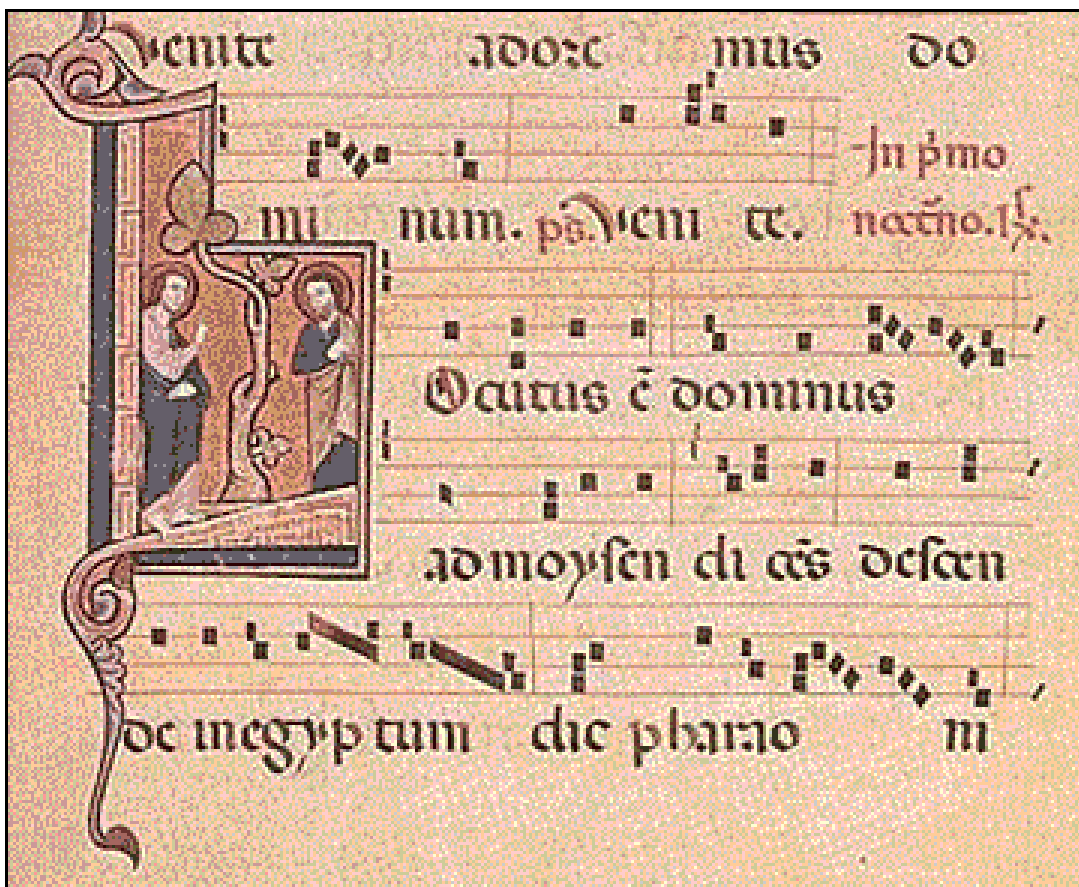 Venite adore mus do
mi num. ps. Veni te.
In p̄mo
noct̄no. R̷.
Ocutus ē dominus
ad moysen di cēs descen
de in egyptum dic pharao ni